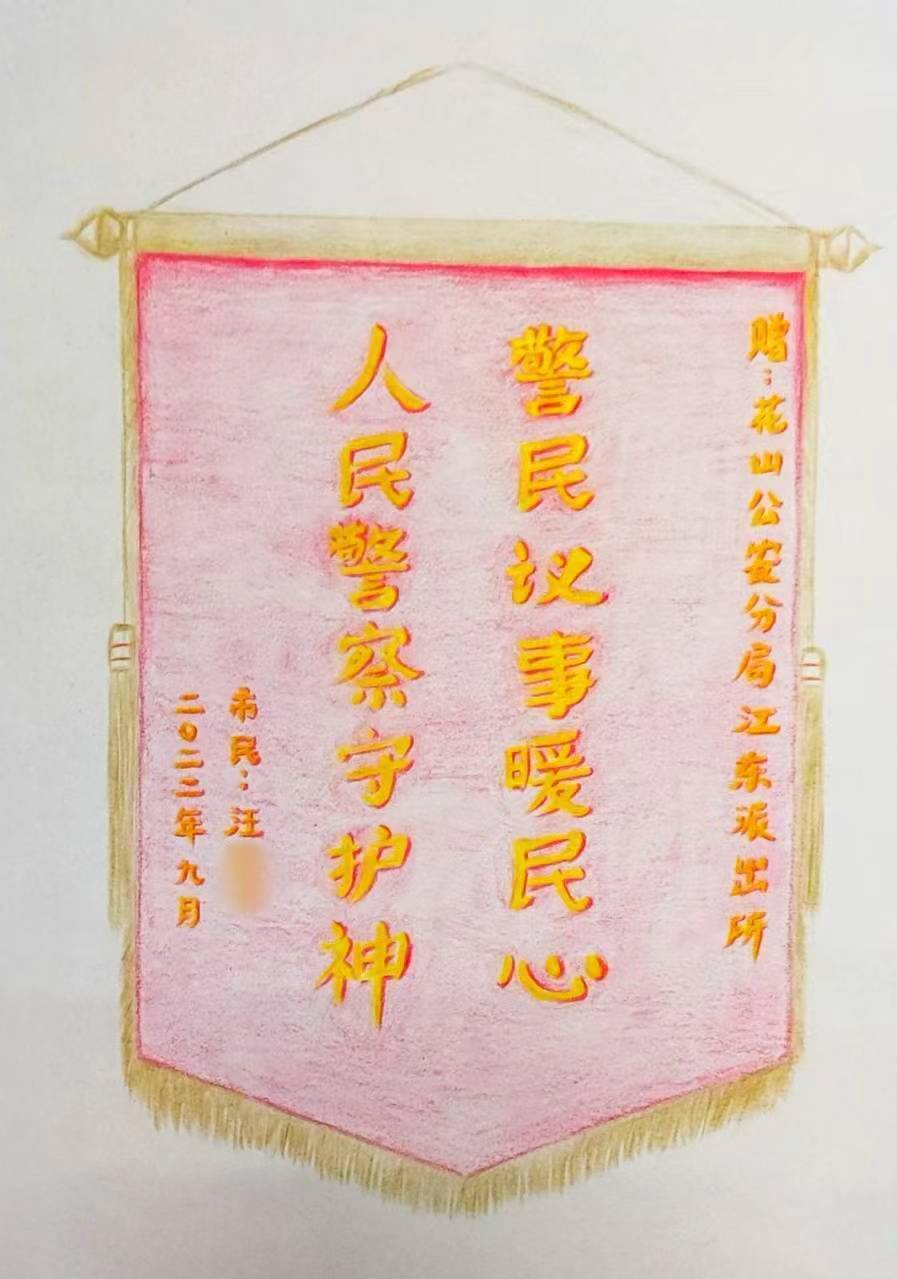 赠:花山公安分局江东派出所
警民议事暖民心
人民警察守护神
市民:汪
二0二二年九月